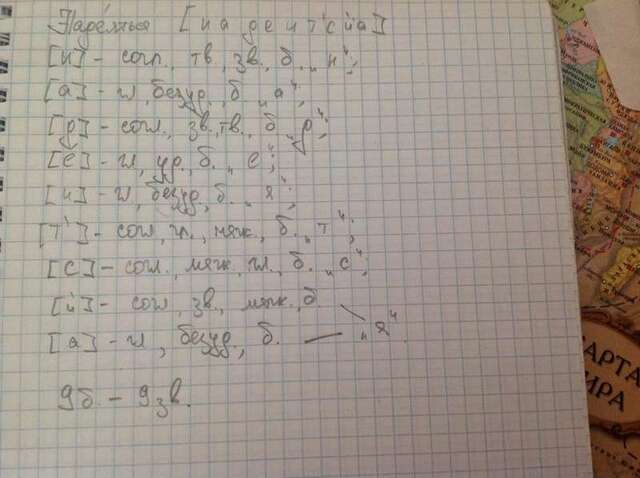 [на деитсйа]
[н] - согл., тв., зв., б. „н“;
[а] - гл, безуд., б. „а“;
[д] - согл., зв., тв., б. „д“;
[е] - гл, уд., б. „е“;
[и] - гл, безуд., б. „я“;
[т'] - согл, гл., мягк., б. „т“;
[с] - согл., мягк., гл., б. „с“;
[й] - согл, зв., мягк., б.
[а] - гл, безуд., б. — „я“.
9б. - 9зв.
КАРТА
МИРА